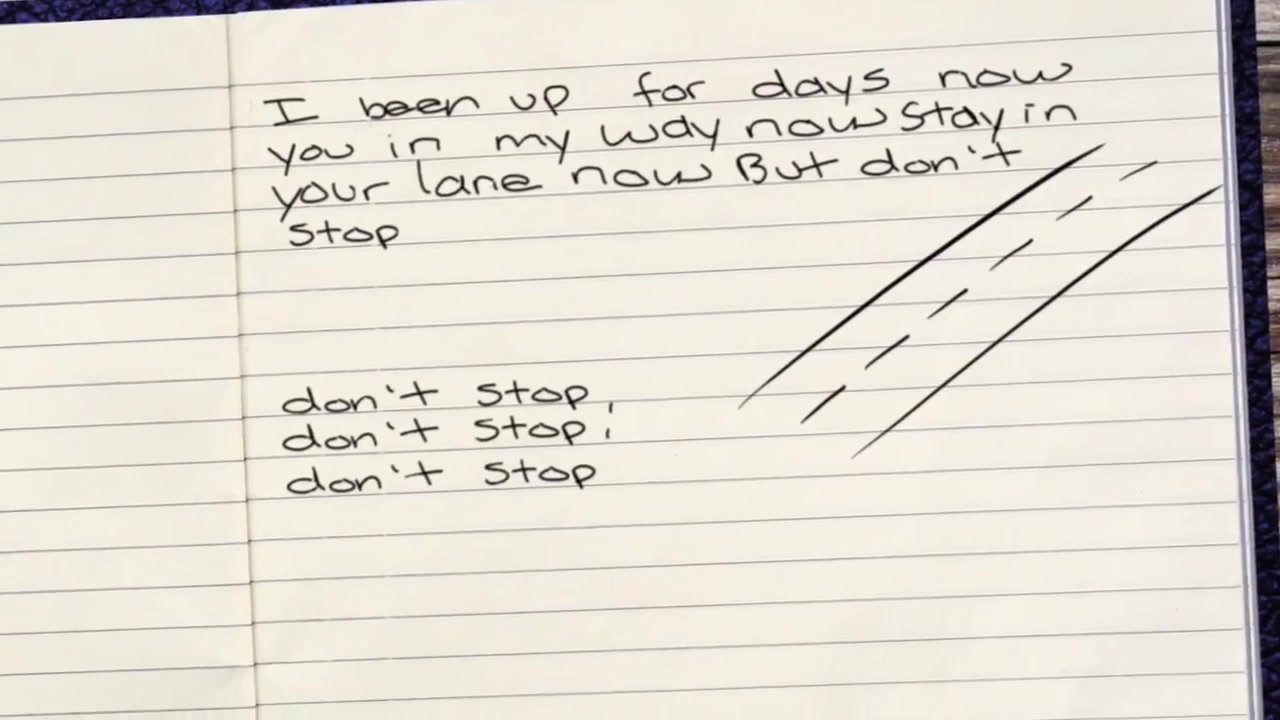 I been up for days now
you in my way now stay in
your lane now But don't
stop
don't stop,
don't stop,
don't stop